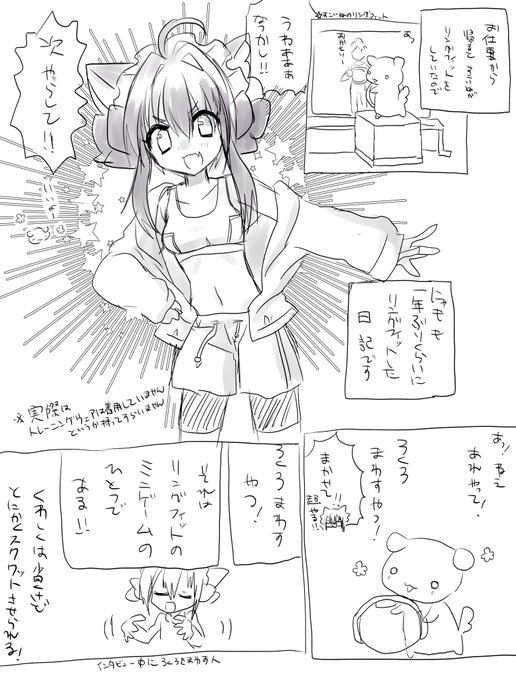 お仕事から
帰ると
リングフィットを
していたので
あっ
おかえりー
うわぁぁぁ
なつかし!!
次 やらして!!
いいよー
にゃもも
一年ぶりくらいに
リングフィットした
日記です
※実際は
トレーニングウェアは着用していません
というか持ってすらいません
あっ!ねえ
あれやって!
ろくろ
まわすやつ!
まかせて
やる!!
ろくろまわす
やつ!
それは
リングフィットの
ミニゲームの
ひとつで
ある!!
くわしくは省くが
とにかくスクワットさせられる!
インタビュー中にろくろをまわす人